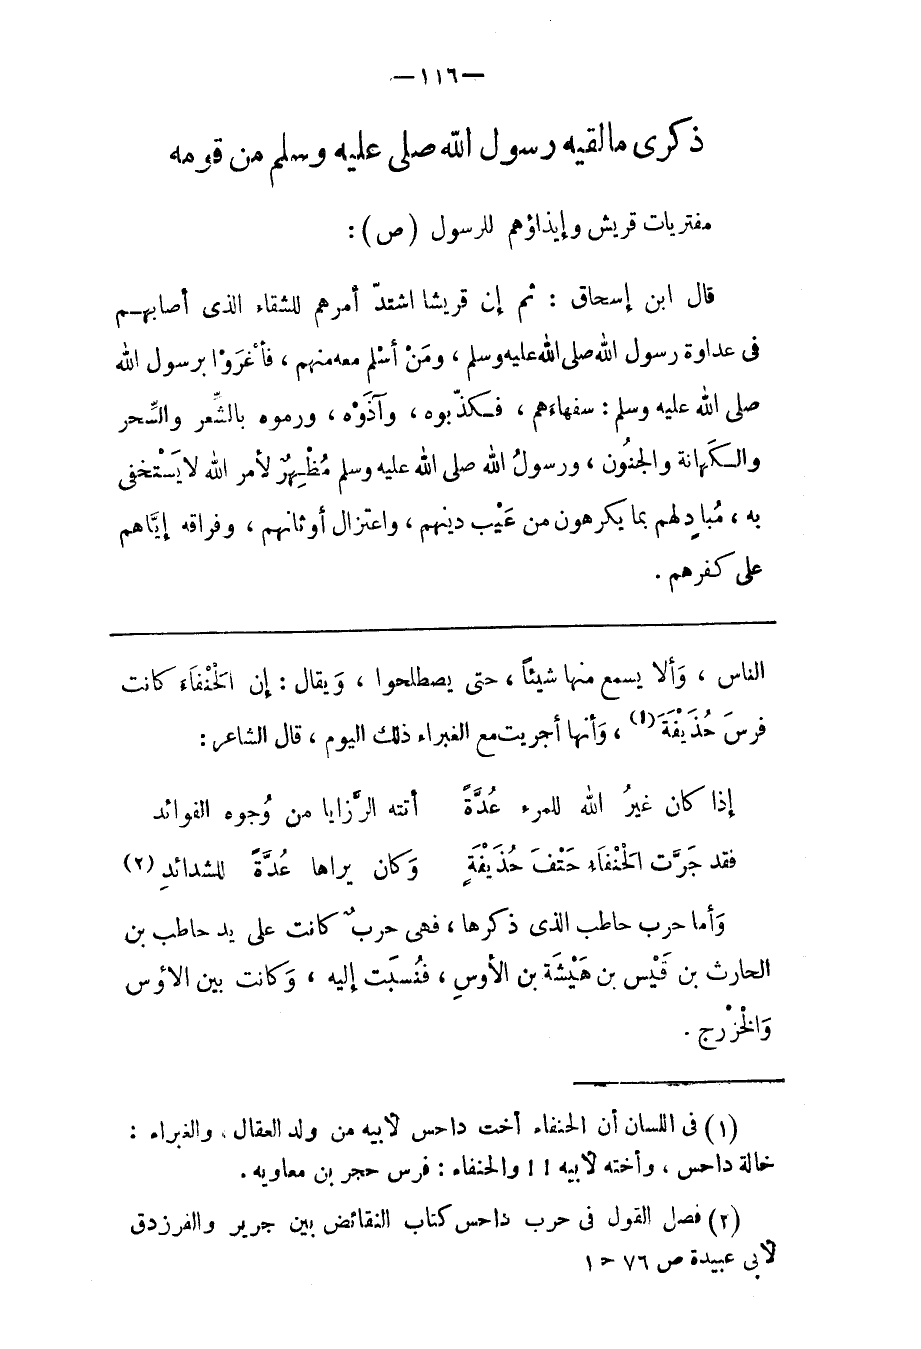 —١١٦—
ذكرى مالقيه رسول الله صلى عليه وسلم من قومه
مفتريات قريش وإيذاؤهم للرسول (ص) :
قال ابن إسحاق : ثم إن قريشا اشتدّ أمرهم للشقاء الذى أصابهـم
فى عداوة رسول الله صلى الله عليه وسلم ، ومَنْ أسْلم معه منهم ، فأغرَوْا برسول الله
صلى الله عليه وسلم : سفهاءَهم ، فـكذّبوه ، وآذَوْه ، ورموه بالشِّعر والسِّحر
والـكَهانة والجنُون ، ورسولُ الله صلى الله عليه وسلم مُظْهِرٌ لأمر الله لا يَسْتخفى
به ، مُبادٍ لهم بما يكرهون من عَيْب دينهم ، واعتزال أوثانهم ، وفراقه إيَّاهم
على كفرهم .
الناس ، وَألا يسمع منها شيئاً ، حتى يصطلحوا ، وَيقال : إن الخنْفَاءَ كانت
فرسَ حُذَيْفَةَ (١) ، وَأنها أجريت مع الغبراء ذلك اليوم ، قال الشاعر :
إذا كان غيرُ الله للمرء عُدَّةً أتته الرَّزايا من وُجوه الفوائد
فقد جَرَّت الخنْفَاء حَتْفَ حُذَيْفَةٍ وَكان يراها عُدَّةً للشدائدِ (٢)
وَأما حرب حاطب الذى ذكرها ، فهى حربٌ كانت على يد حاطب بن
الحارث بن قَيْس بن هَيْشَة بن الأوسِ ، فنُسبَت إليه ، وَكانت بين الأوْس
وَالخزْرج .
(١) فى اللسان أن الحنفاء أخت داحس لأبيه من ولد العقال . والغبراء :
خالة داحس ، وأخته لأبيه ! ! والحنفاء : فرس حجر بن معاويه .
(٢) فصل القول فى حرب داحس كتاب النقائض بين جرير والفرزدق
لأبى عبيدة ص ٧٦ ح ١